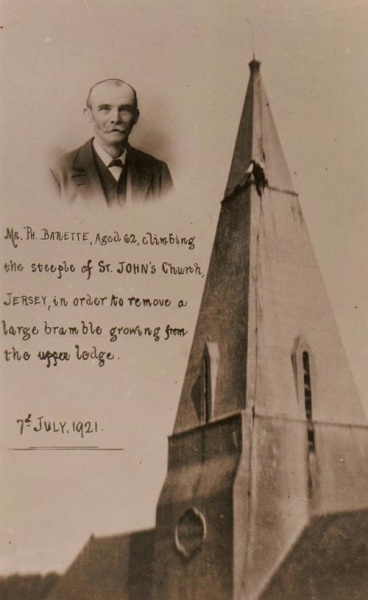 Mr. Ph. BARETTE, Aged 62, climbing
the steeple of ST. JOHN's Church,
JERSEY, in order to remove a
large bramble growing from
the upper lodge.
7th JULY, 1921.